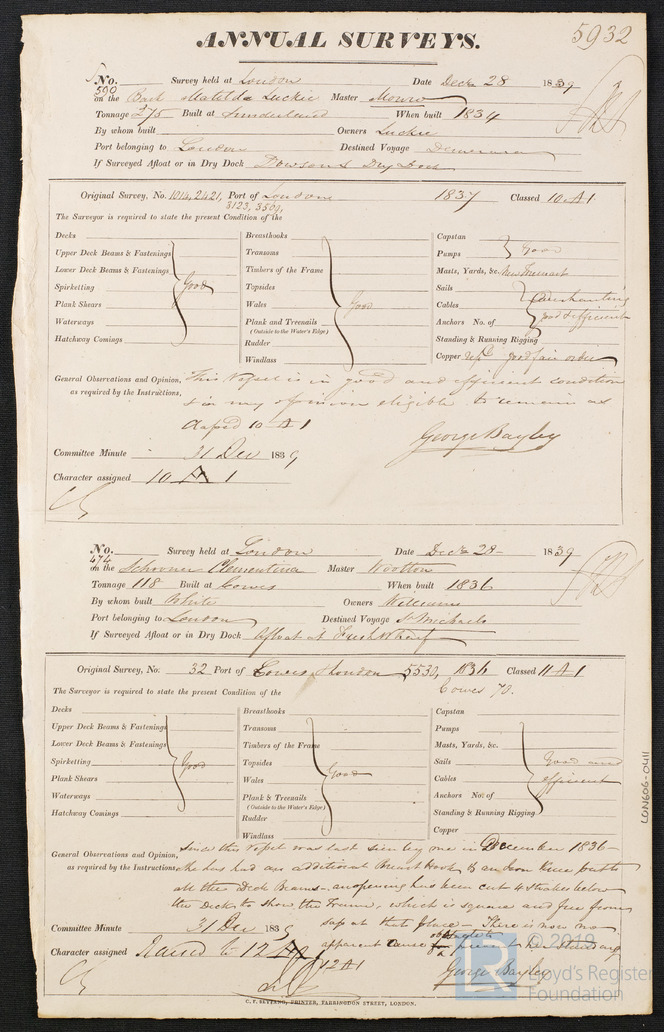 5932
ANNUAL SURVEYS.
No. 590 Survey held at London Date Decr 28 1839
on the Bark Matilda Luckie Master Monro
Tonnage 275 Built at Sunderland When built 1834
By whom built Owners Luckie
Port belonging to London Destined Voyage Demerara
If Surveyed Afloat or in Dry Dock Dowson's Dry Dock
Original Survey, No. 1014, 2421, 3123, 3501, Port of London 1837 Classed 10 A1
The Surveyor is required to state the present Condition of the
Decks
Upper Deck Beams & Fastenings
Lower Deck Beams & Fastenings
Spirketting Good
Plank Shears
Waterways
Hatchway Comings
Breasthooks
Transoms
Timbers of the Frame
Topsides
Wales Good
Plank and Treenails
(Outside to the Water's Edge)
Rudder
Windlass
Capstan
Pumps Good
Masts, Yards, &c.
Sails
Cables
Anchors No. of good & efficient
Standing & Running Rigging
Copper good fair order
General Observations and Opinion, as required by the Instructions, This Vessel is in good and efficient condition
& in my opinion eligible to remain as
Classed 10 A1
George Bayley
Committee Minute 31 Dec 1839
Character assigned 10 A 1
No. 474 Survey held at London Date Decr 28 1839
on the Schooner Clementina Master Wootton
Tonnage 118 Built at Cowes When built 1836
By whom built White Owners Williams
Port belonging to London Destined Voyage St Michaels
If Surveyed Afloat or in Dry Dock Afloat at Fresh Wharf
Original Survey, No. 32 Port of Cowes & London 5530, 1836 Classed 11 A1
The Surveyor is required to state the present Condition of the Cowes 70.
Decks
Upper Deck Beams & Fastenings
Lower Deck Beams & Fastenings
Spirketting Good
Plank Shears
Waterways
Hatchway Comings
Breasthooks
Transoms
Timbers of the Frame
Topsides
Wales Good
Plank & Treenails
(Outside to the Water's Edge)
Rudder
Windlass
Capstan
Pumps
Masts, Yards, &c.
Sails Good and
Cables efficient
Anchors No. of
Standing & Running Rigging
Copper
General Observations and Opinion, as required by the Instructions, Since this Vessel was last seen by me in December 1836
she has had an additional Breast Hook & an Iron Knee put to
all the Deck Beams - an opening has been cut 4 strakes below
the deck to show the Frame, which is square and free from
sap at that place - There is now no
apparent cause to prevent her standing
12 A1
George Bayley
Committee Minute 31 Dec 1839
Character assigned Raised to 12 A1
C. F. SEYFANG, PRINTER, FARRINGDON STREET, LONDON.
LON606-0411
LR © 2019
Lloyd's Register
Foundation